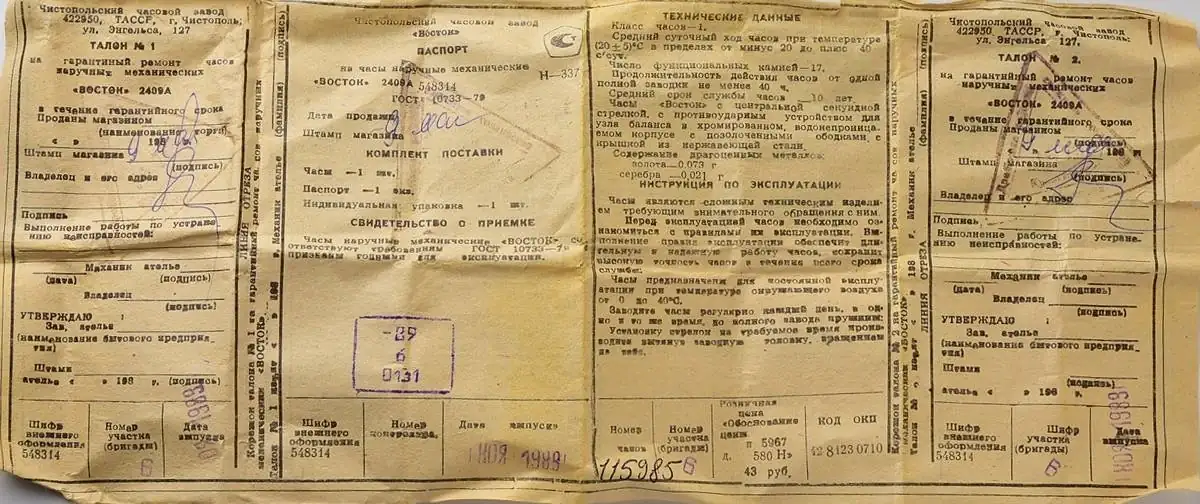 Чистопольский часовой завод
422950, ТАССР, г. Чистополь;
ул. Энгельса, 127
ТАЛОН № 1
на гарантийный ремонт часов
наручных механических
«ВОСТОК» 2409А
в течение гарантийного срока
Проданы магазином
(наименование торга)
« » 198 г.
Штамп магазина
(подпись)
Владелец и его адрес
Подпись
Выполнение работы по устране-
нию неисправностей:
Механик ателье
(дата) (подпись)
Владелец
(подпись)
УТВЕРЖДАЮ :
Зав. ателье
(наименование бытового предприя-
тия)
Штамп
ателье « » 198 г. (подпись)
Шифр внешнего оформления
548314
Номер участка (бригады)
6
Дата выпуска
1988
ЛИНИЯ ОТРЕЗА
Корешок талона № 1 на гарантийный ремонт часов наручных
механических «ВОСТОК»
Талон № 1 изъят « » 198 г. Механик ателье (фамилия) (подпись)
Чистопольский часовой завод
«Восток»
ПАСПОРТ
на часы наручные механические
«ВОСТОК» 2409А 548314
ГОСТ 10733—79
Н—337
Дата продажи 9 мая
Штамп магазина
КОМПЛЕКТ ПОСТАВКИ
Часы —1 шт.
Паспорт —1 экз.
Индивидуальная упаковка —1 шт.
СВИДЕТЕЛЬСТВО О ПРИЕМКЕ
Часы наручные механические «ВОСТОК» со-
ответствуют требованиям ГОСТ 10733—7
признаны годными для эксплуатации.
-09
6
0131
Шифр внешнего оформления
548314
Номер контролера
Дата выпуска
НОЯ 1988
ТЕХНИЧЕСКИЕ ДАННЫЕ
Класс часов—1.
Средний суточный ход часов при температуре
(20±5)°С в пределах от минус 20 до плюс 40
с/сут.
Число функциональных камней—17.
Продолжительность действия часов от одной
полной заводки не менее 40 ч.
Средний срок службы часов —10 лет.
Часы «Восток» с центральной секундной
стрелкой, с противоударным устройством для
узла баланса в хромированном, водонепроница-
емом корпусе с позолоченными ободками, с
крышкой из нержавеющей стали.
Содержание драгоценных металлов:
золота—0,073 г
серебра —0,021 г
ИНСТРУКЦИЯ ПО ЭКСПЛУАТАЦИИ
Часы являются сложным техническим издели-
ем требующим внимательного обращения с ним.
Перед эксплуатацией часов необходимо оз-
накомиться с правилами их эксплуатации. Вы-
полнение правил эксплуатации обеспечит дли-
тельную и надежную работу часов, сохранит
высокую точность часов в течение всего срока
службы.
Часы предназначены для постоянной эксплу-
атации при температуре окружающего воздуха
от 0 до 40°С.
Заводите часы регулярно каждый день, в од-
но и то же время, до полного завода пружины.
Установку стрелок на требуемое время произ-
водите вытянув заводную головку, вращением
на себя.
Номер часов
115985
Номер участка (бригады)
6
Розничная
цена
«Обоснование
цены»
п 5967
д. 580 Н»
43 руб.
КОД ОКП
42 8123 0710
Корешок талона № 2 на гарантийный ремонт часов наручных
механических «ВОСТОК»
Талон № 2 изъят « » 198 г. Механик ателье (фамилия) (подпись)
ЛИНИЯ ОТРЕЗА
Чистопольский часовой завод
422950, ТАССР, г. Чистополь:
ул. Энгельса, 127.
ТАЛОН № 2.
на гарантийный ремонт часов
наручных механических
«ВОСТОК» 2409А
в течение гарантийного срока
Проданы магазином
« » 198 г
(подпись)
Штамп магазина
(подпись)
Владелец и его адрес
Подпись
Выполнение работы по устране-
нию неисправностей:
Механик ателье
(дата) (подпись)
Владелец
(подпись)
УТВЕРЖДАЮ :
Зав. ателье
(наименование бытового предприя-
тия)
Штамп
(подпись)
ателье « » 198 г.
Шифр внешнего оформления
548314
Шифр участка (бригады)
6
Дата выпуска
НОЯ 1988